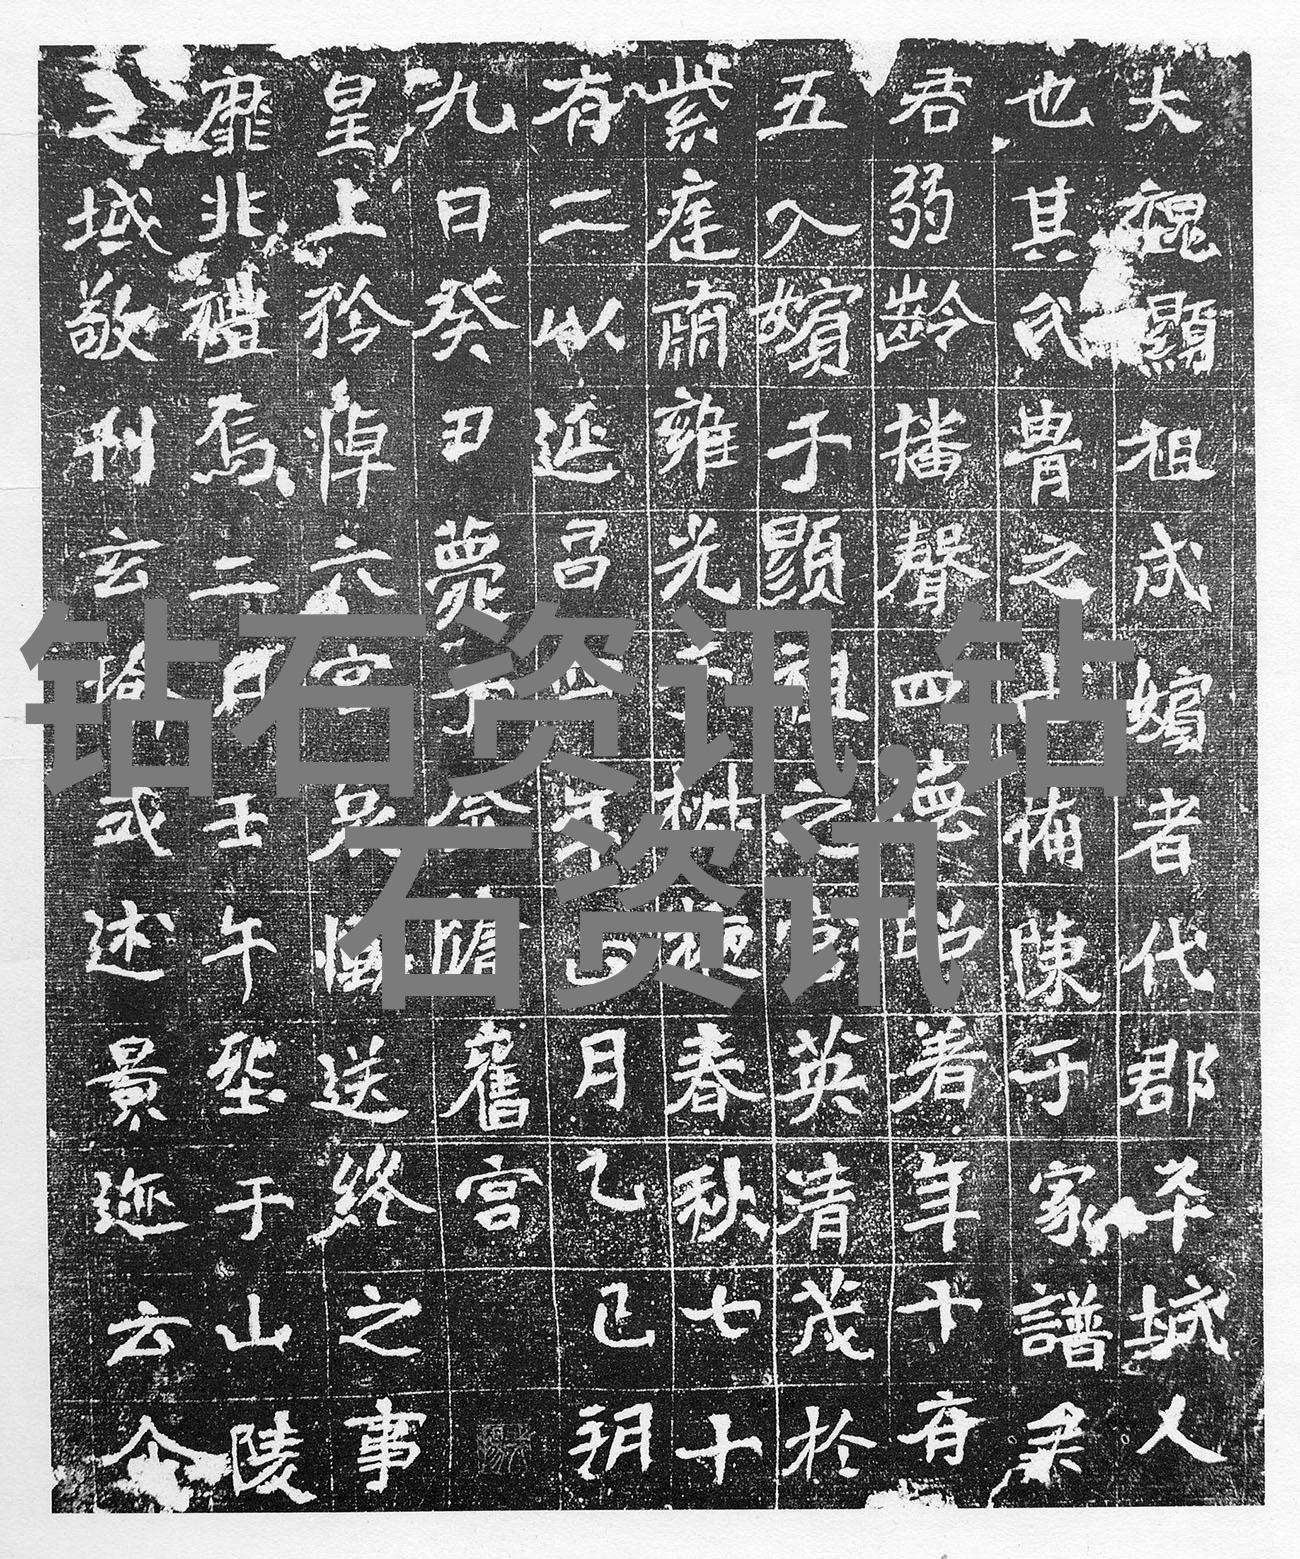 大魏顯祖成嬪者代郡平城人
也其氏胄之備陳于家譜矣
君弱齡播聲四德昭著年十有
五入嬪于顯祖之宮英清茂於
紫庭肅雍光于椒掖春秋七十
有二以延昌四年正月乙巳朔
九日癸丑薨于金墉舊宮
皇上矜悼六宮哀送終之事
靡非禮焉二月壬午塟于山陵
之域敬刊玄式述景迹云尒
钻石资讯,钻
石资讯